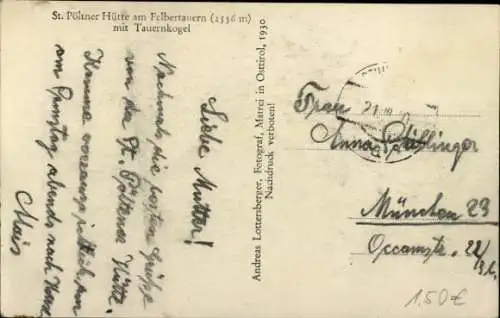 St. Pöltner Hütte am Felbertauern (2556 m)
mit Tauernkogel
Liebe Mutter!
Nochmals die besten Grüße
von der St. Pöltener Hütte.
Komme
am Samstag abends nach Hause
Andreas Lottersberger, Fotograf, Matrei in Osttirol, 1930
Nachdruck verboten!
Frau
Anna
München 23
Occamstr. 22/
1,50 €